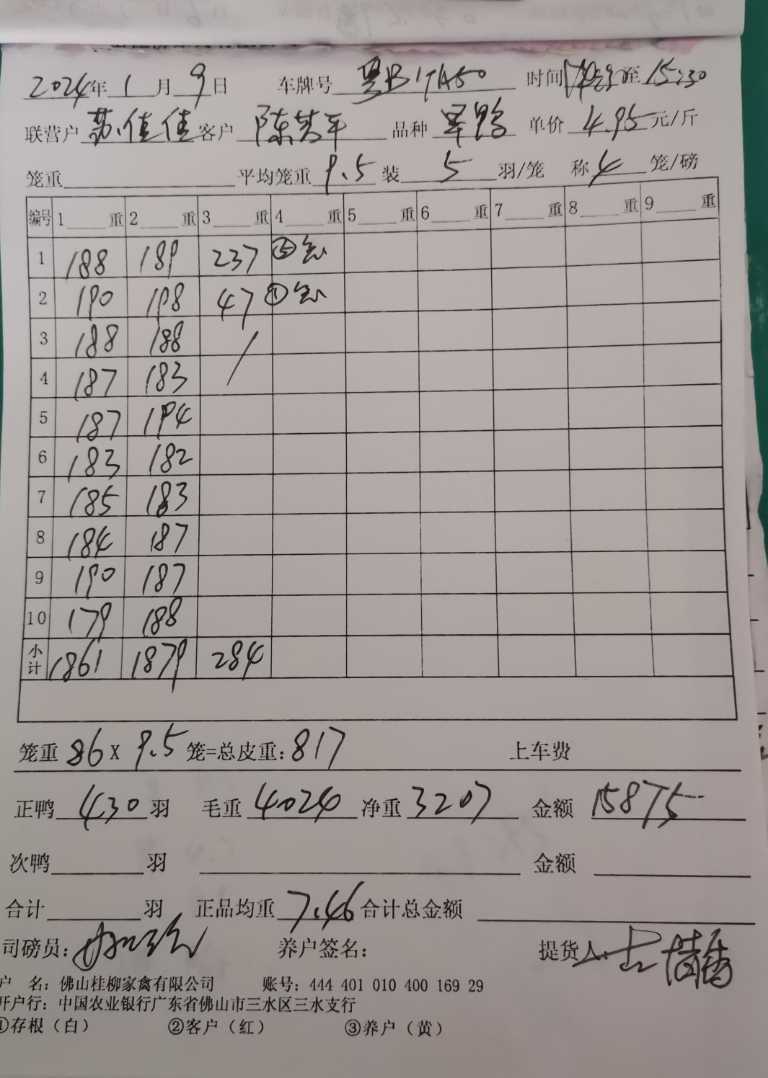 2024年1月9日 车牌号 粤B17A50 时间 至15:30
联营户 苏佳佳 客户 陈其平 品种 单价 4.95 元/斤
笼重 平均笼重 9.5 装 5 羽/笼 称 4 笼/磅
编号 1 重 2 重 3 重 4 重 5 重 6 重 7 重 8 重 9 重
1 188 189 237 ⑤
2 190 198 47 ①
3 188 188
4 187 183
5 187 194
6 183 182
7 185 183
8 184 187
9 190 187
10 179 188
小计 1861 1879 284
笼重 86 X 9.5 笼=总皮重: 817 上车费
正鸭 430 羽 毛重 4024 净重 3207 金额 15875
次鸭 羽 金额
合计 羽 正品均重 7.46 合计总金额
司磅员: 养户签名: 提货人:
户 名: 佛山桂柳家禽有限公司 账号: 444 401 010 400 169 29
开户行: 中国农业银行广东省佛山市三水区三水支行
①存根（白） ②客户（红） ③养户（黄）